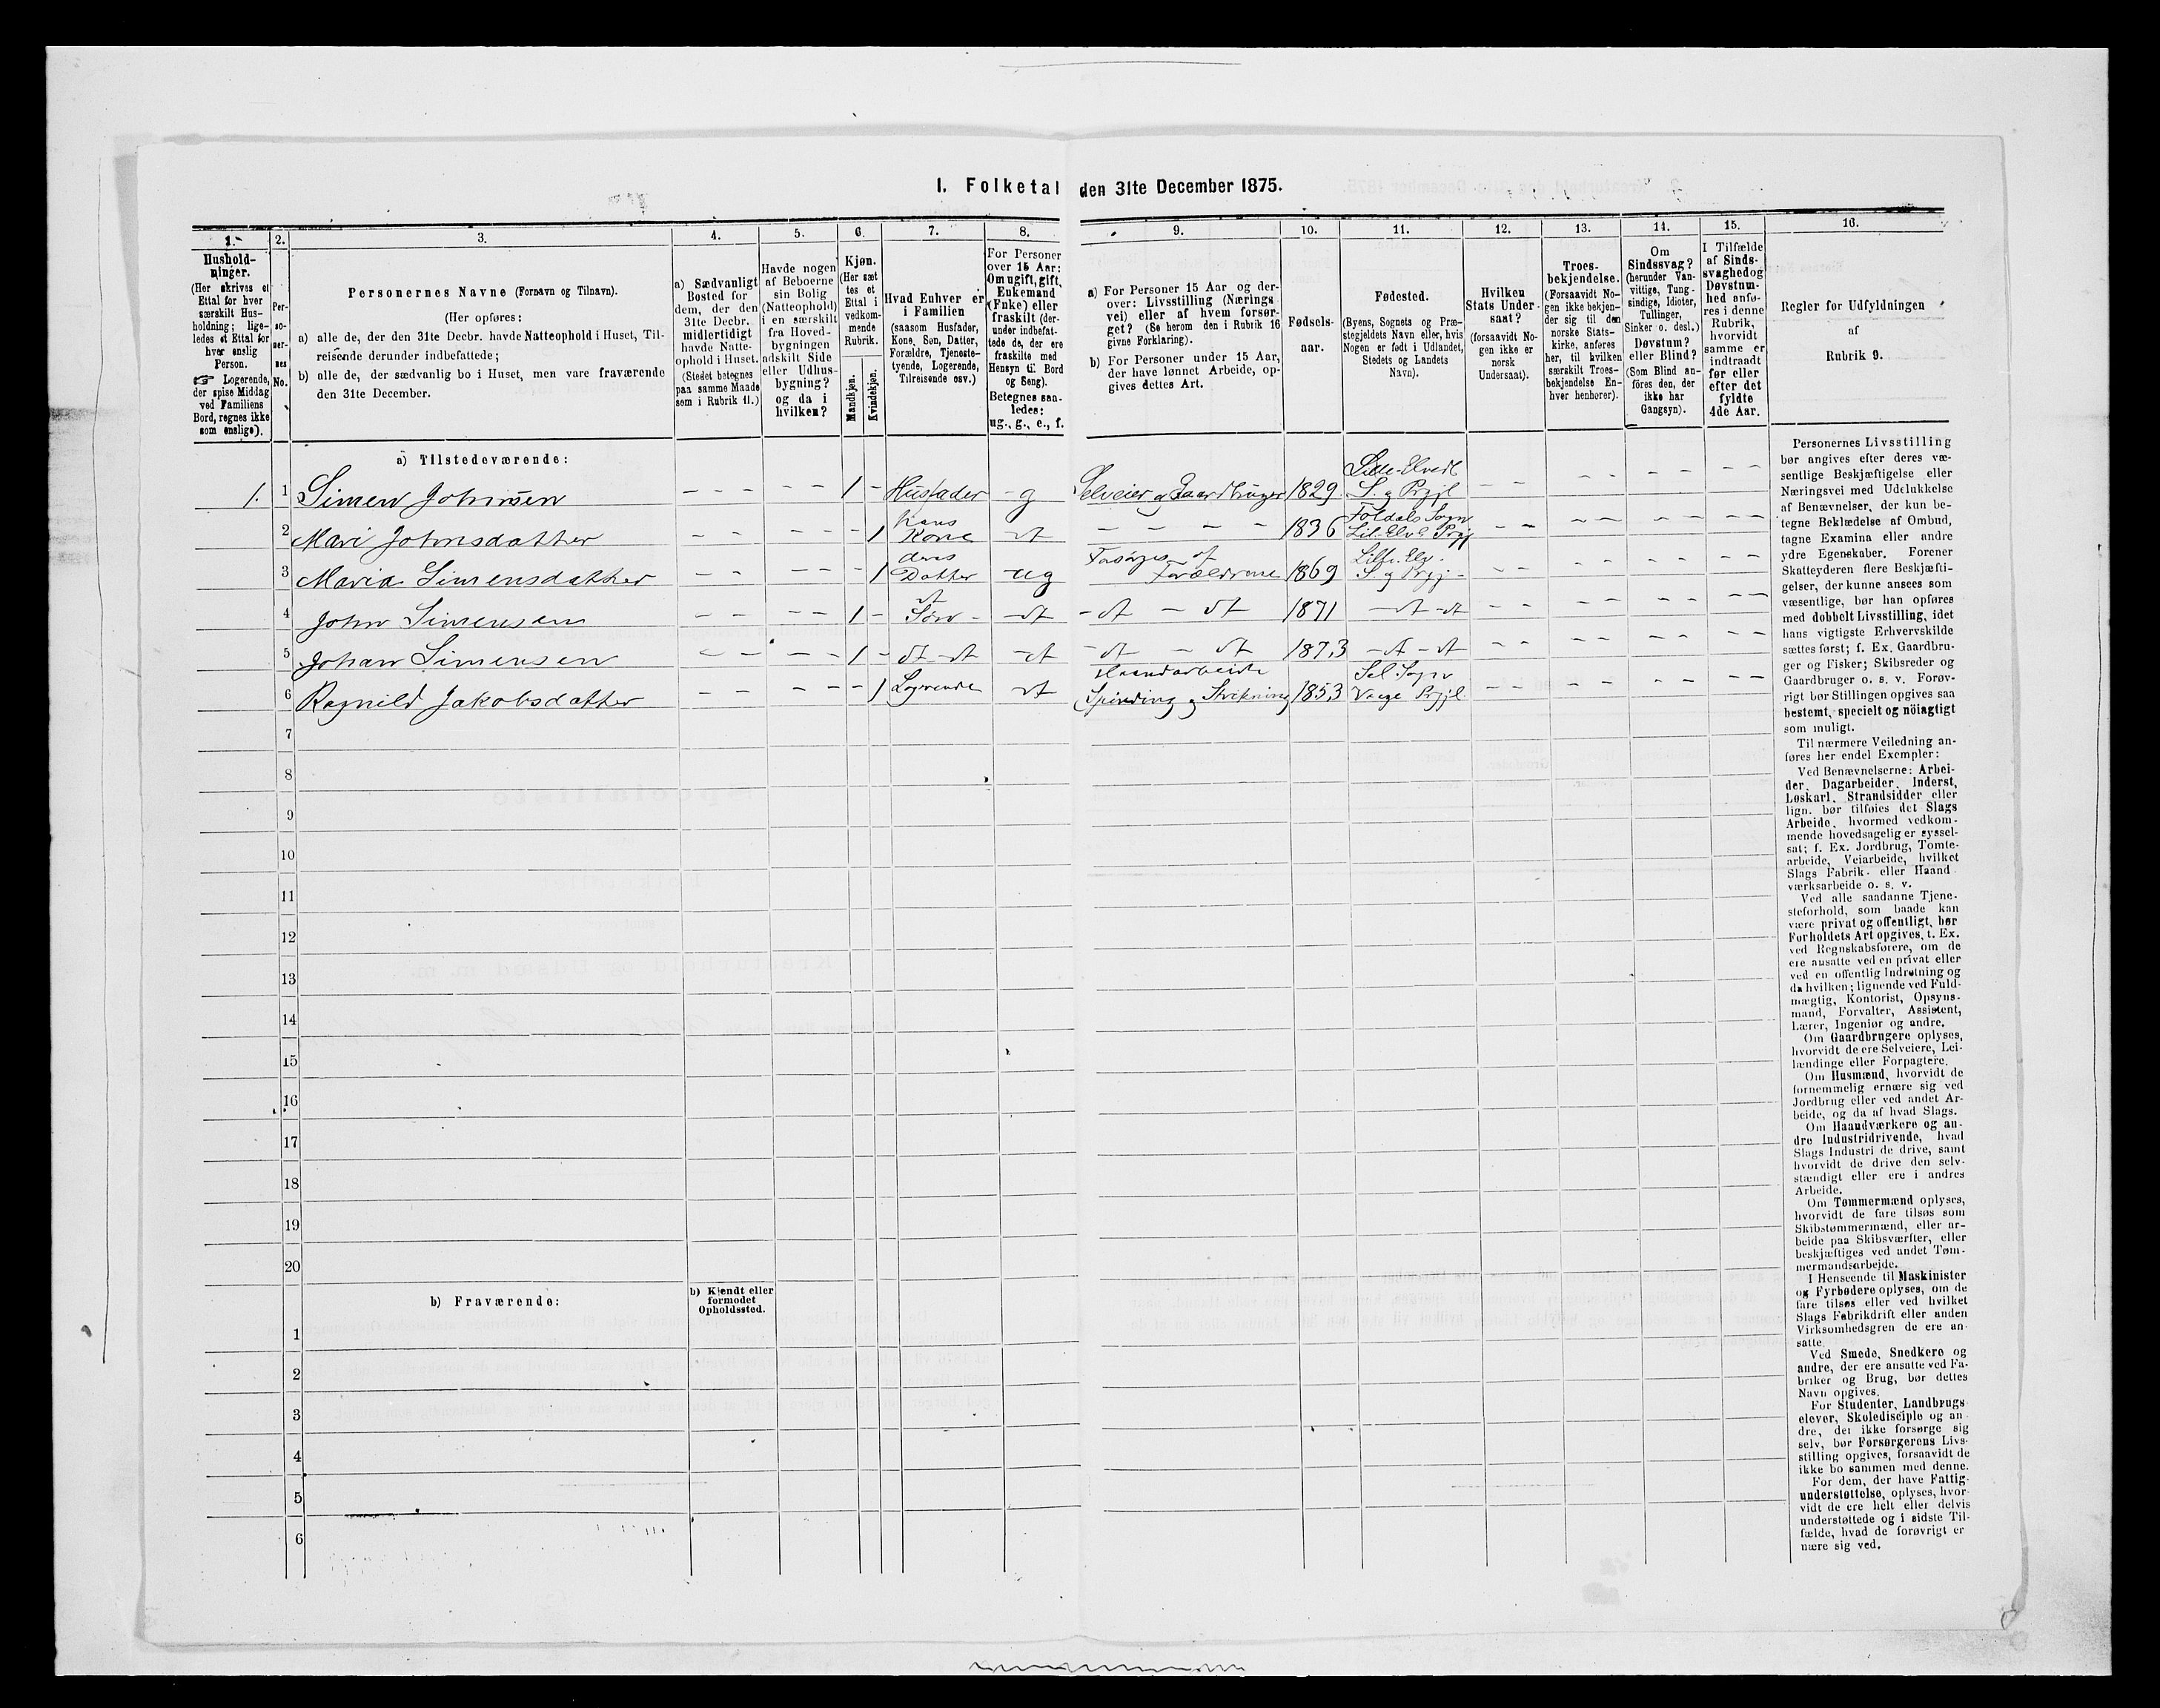 I. Folketal den 31te December 1875.
1.
Hushold-
ninger.
(Her skrives et
Ettal for hver
særskilt Hus-
holdning; lige-
ledes et Ettal for
hver enslig
Person.
☞ Logerende,
der spise Middag
ved Familiens
Bord, regnes ikke
som enslige).
2.
Per-
so-
ner-
nes
No.
3.
Personernes Navne (Fornavn og Tilnavn).
(Her opføres:
a) alle de, der den 31te Decbr. havde Natteophold i Huset, Til-
reisende derunder indbefattede;
b) alle de, der sædvanlig bo i Huset, men vare fraværende
den 31te December.
4.
a) Sædvanligt
Bosted for
dem, der den
31te Decbr.
midlertidigt
havde Natte-
ophold i Huset.
(Stedet betegnes
paa samme Maade
som i Rubrik 11.)
5.
Havde nogen
af Beboerne
sin Bolig
(Natteophold)
i en særskilt
fra Hoved-
bygningen
adskilt Side
eller Udhus-
bygning?
og da i
hvilken?
6.
Kjøn.
(Her sæt
tes et
Ettal i
vedkom-
mende
Rubrik.
Mandkjøn.
Kvindekjøn.
7.
Hvad Enhver er
i Familien
(saasom Husfader,
Kone, Søn, Datter,
Forældre, Tjeneste-
tyende, Logerende,
Tilreisende osv.)
8.
For Personer
over 15 Aar:
Om ugift, gift,
Enkemand
(Enke) eller
fraskilt (der-
under indbefat-
tede de, der ere
fraskilte med
Hensyn til Bord
og Seng).
Betegnes saa-
ledes:
ug., g., e., f.
9.
a) For Personer 15 Aar og der-
over: Livsstilling (Nærings
vei) eller af hvem forsør-
get? (Se herom den i Rubrik 16
givne Forklaring).
b) For Personer under 15 Aar,
der have lønnet Arbeide, op-
gives dettes Art.
10.
Fødsels-
aar.
11.
Fødested.
(Byens, Sognets og Præ-
stegjeldets Navn eller, hvis
Nogen er født i Udlandet,
Stedets og Landets
Navn).
12.
Hvilken
Stats Under-
saat?
(forsaavidt No-
gen ikke er
norsk
Undersaat).
13.
Troes-
bekjendelse.
(Forsaavidt No-
gen ikke bekjen-
der sig til den
norske Stats-
kirke, anføres
her, til kvilken
særskilt Troes-
bekjendelse En-
hver henhører).
14.
Om
Sindssvag?
(herunder Van-
vittige, Tung-
sindige, Idioter,
Tullinger,
Sinker o. desl.)
Døvstum?
eller Blind?
(Som Blind an-
føres den, der
ikke har
Gangsyn).
15.
I Tilfælde
af Sinds-
svaghed og
Døvstum-
hed anfø-
res i denne
Rubrik,
hvorvidt
samme er
indtraadt
før eller
efter det
fyldte
4de Aar.
16.
Regler for Udfyldningen
af
Rubrik 9.
a) Tilstedeværende:
1. 1 Simen Johnsen - - - - 1 - Husfader - g Selveier og Gaardbruger 1829 Lille-Elvedl S. og Prgjl - - - - - - - -
2 Mari Johnsdatter - - - - - 1 hans Kone dt - - - - 1836 Foldals Sogn Lil. Elvd. Prgj - - - - - - - -
3 Maria Simensdatter - - - - - 1 deres Datter - ug Forsørges af Forældrene 1869 Lille. Elv. S. og Prgj - - - - - - - - -
4 John Simensen - - - - 1 - dt Søn - - dt - dt - dt 1871 - dt - dt - - - - - - - -
5 Johan Simensen - - - - 1 - dt dt - dt - dt - dt 1873 - dt - dt - - - - - - - -
6 Ragnild Jakobsdatter - - - - - 1 Logerende dt Haandarbeide Spinding og Strikning 1853 Sel Sogn Vaage Prgjl - - - - - - - -
7
8
9
10
11
12
13
14
15
16
17
18
19
20
b) Fraværende:
b) Kjendt eller
formodet
Opholdssted.
1
2
3
4
5
6
Personernes Livsstilling
bør angives efter deres væ-
sentlige Beskjæftigelse eller
Næringsvei med Udelukkelse
af Benævnelser, der kun be-
tegne Beklædelse af Ombud,
tagne Examina eller andre
ydre Egenskaber. Forener
Skatteyderen flere Beskjæfti-
gelser, der kunne ansees som
væsentlige, bør han opføres
med dobbelt Livsstilling, idet
hans vigtigste Erhvervskilde
sættes først; f. Ex. Gaardbru-
ger og Fisker; Skibsreder og
Gaardbruger o. s. v. Forøv-
rigt bør Stillingen opgives saa
bestemt, specielt og nöiagtigt
som muligt.
Til nærmere Veiledning an-
føres her endel Exempler:
Ved Benævnelserne: Arbei-
der, Dagarbeider, Inderst,
Løskarl, Strandsidder eller
lign. bør tilføies det Slags
Arbeide, hvormed vedkom-
mende hovedsagelig er syssel-
sat; f. Ex. Jordbrug, Tomte-
arbeide, Veiarbeide, hvilket
Slags Fabrik- eller Haand-
værksarbeide o. s. v.
Ved alle saadanne Tjene-
steforhold, som baade kan
være privat og offentligt, bør
Forholdets Art opgives, t. Ex.
ved Regnskabsførere, om de
ere ansatte ved en privat eller
ved en offentlig Indretning og
da hvilken; lignende ved Fuld-
mægtig, Kontorist, Opsyns-
mand, Forvalter, Assistent,
Lærer, Ingeniør og andre.
Om Gaardbrugere oplyses,
hvorvidt de ere Selveiere, Lei-
lændinge eller Forpagtere.
Om Husmænd, hvorvidt de
fornemmelig ernære sig ved
Jordbrug eller ved andet Ar-
beide, og da af hvad Slags.
Om Haandværkere og an-
dre Industridrivende, hvad
Slags Industri de drive, samt
hvorvidt de drive den selv-
stændigt eller ere i andres
Arbeide.
Om Tømmermænd oplyses,
hvorvidt de fare tilsøs som
Skibstømmermænd, eller ar-
beide paa Skibsværfter, eller
beskjæftiges ved andet Tøm-
mermandsarbejde.
I Henseende til Maskinister
og Fyrbødere oplyses, om de
fare tilsøs eller ved hvilket
Slags Fabrikdrift eller anden
Virksomhedsgren de ere an-
satte.
Ved Smede, Snedkere og
andre, der ere ansatte ved Fa-
briker og Brug, bør dettes
Navn opgives.
For Studenter, Landbrugs-
elever, Skoledisciple og an-
dre, der ikke forsørge sig
selv, bør Forsørgerens Livs-
stilling opgives, forsaavidt de
ikke bo sammen med denne.
For dem, der have Fattig-
understøttelse, oplyses, hvor-
vidt de ere helt eller delvis
understøttede og i sidste Til-
fælde, hvad de forøvrigt er
nære sig ved.